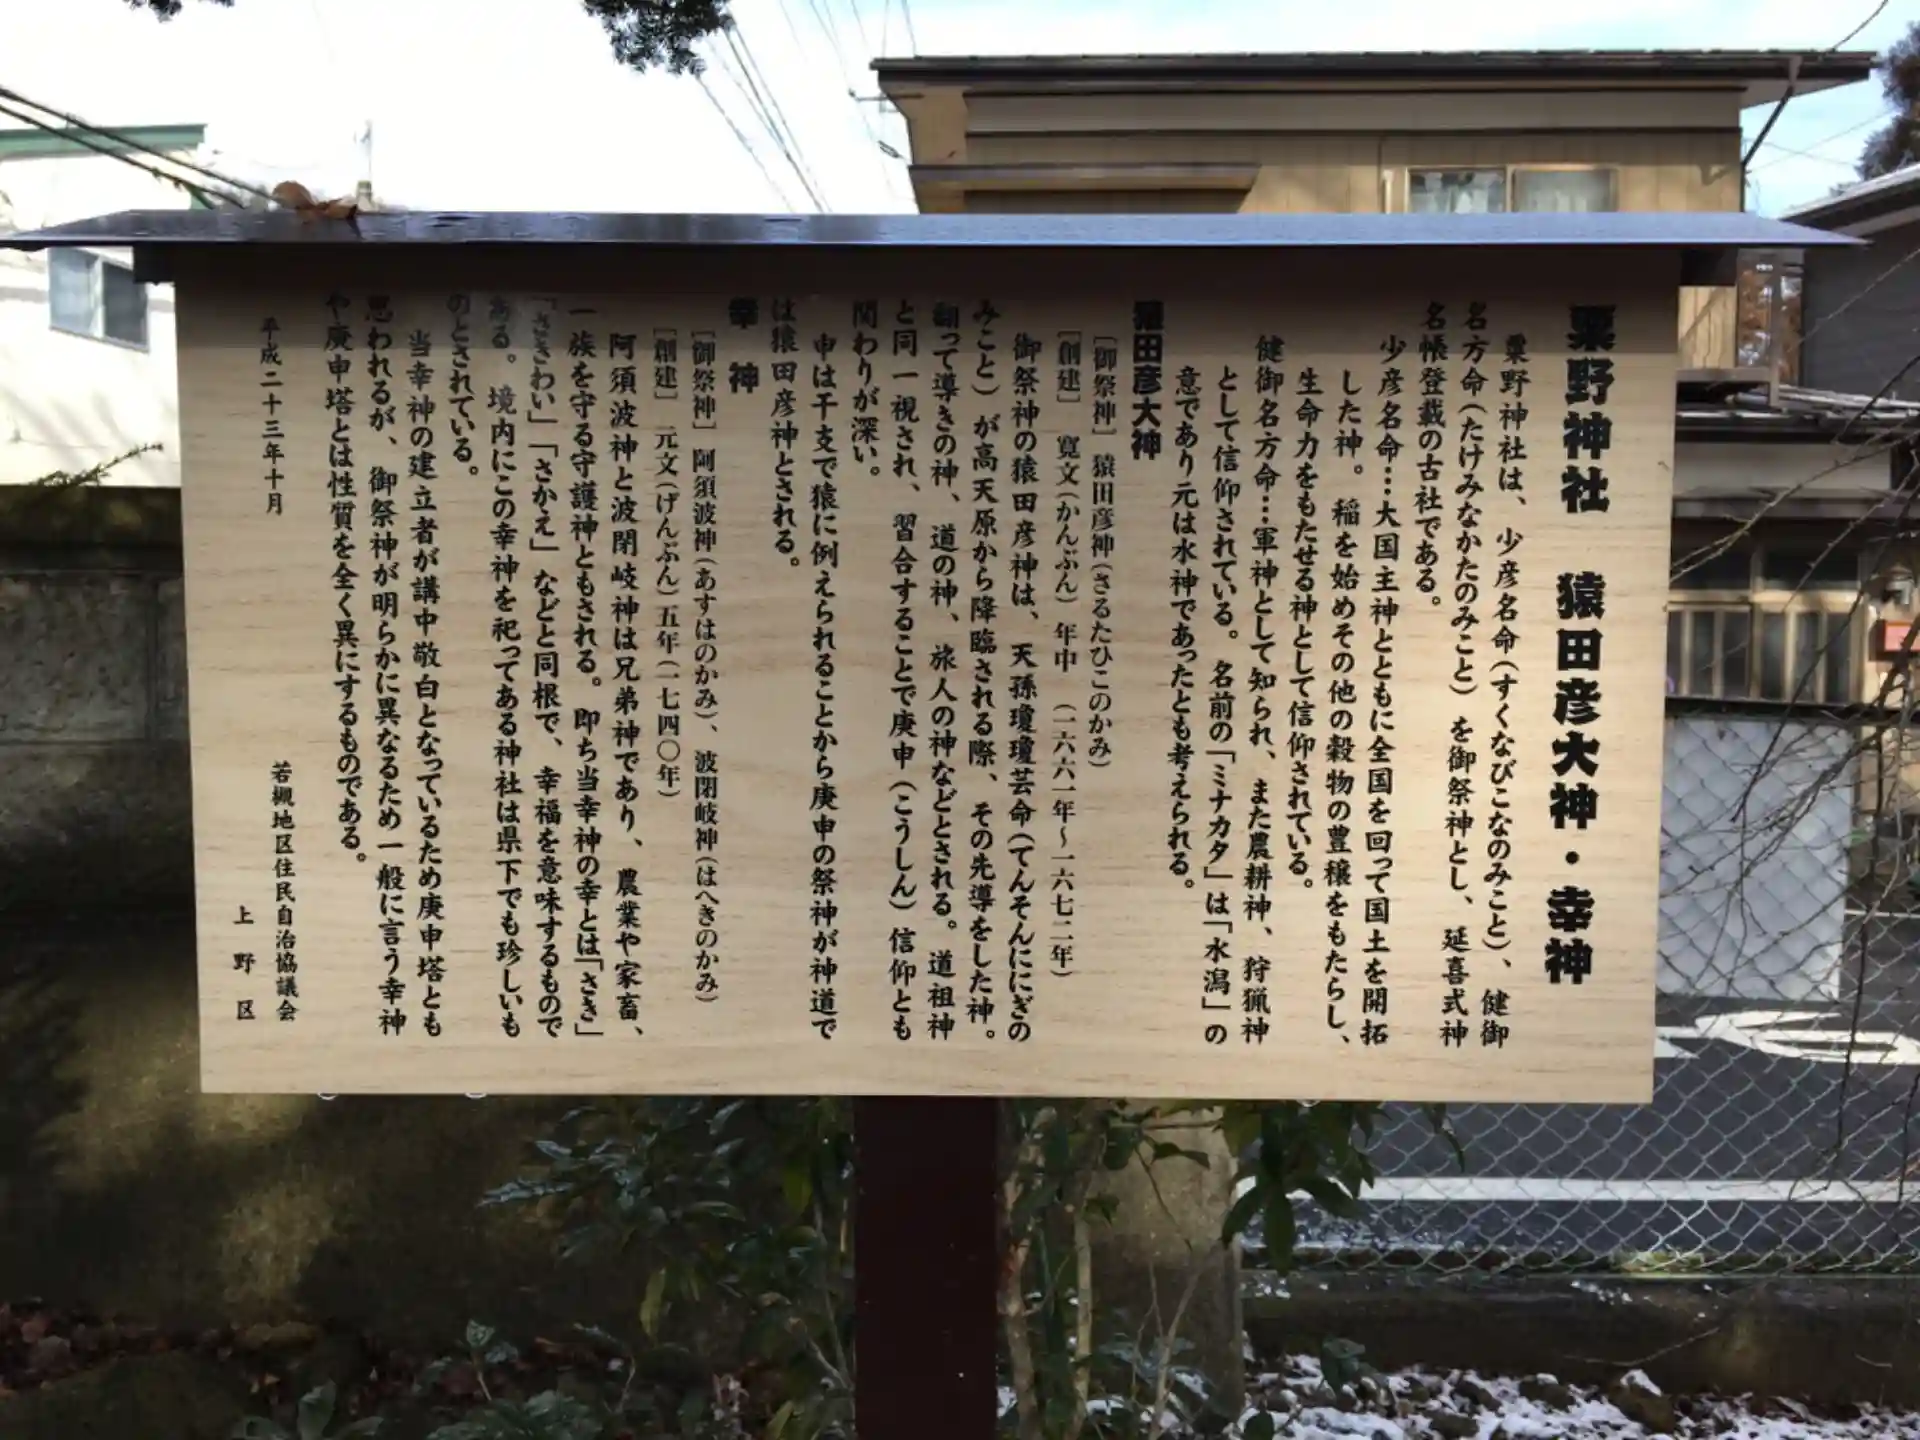 粟野神社　猿田彦大神・幸神
粟野神社は、少彦名命(すくなびこなのみこと)、健御
名方命(たけみなかたのみこと)を御祭神とし、延喜式神
名帳登載の古社である。
少彦名命…大国主神とともに全国を回って国土を開拓
した神。稲を始めその他の穀物の豊穣をもたらし、
生命力をもたせる神として信仰されている。
健御名方命…軍神として知られ、また農耕神、狩猟神
として信仰されている。名前の「ミナカタ」は「水潟」の
意であり元は水神であったとも考えられる。
猿田彦大神
［御祭神］猿田彦神(さるたひこのかみ)
［創建］　寛文(かんぶん)年中　(一六六一年～一六七二年)
御祭神の猿田彦神は、天孫瓊瓊芸命(てんそんににぎの
みこと)が高天原から降臨される際、その先導をした神。
翻って導きの神、道の神、旅人の神などとされる。道祖神
と同一視され、習合することで庚申(こうしん)信仰とも
関わりが深い。
申は干支で猿に例えられることから庚申の祭神が神道で
は猿田彦神とされる。
幸　神
［御祭神］阿須波神(あすはのかみ)、波閇岐神(はへきのかみ)
［創建］　元文(げんぶん)五年(一七四〇年)
阿須波神と波閇岐神は兄弟神であり、農業や家畜、
一族を守る守護神ともされる。即ち当幸神の幸とは「さき」
「さきわい」「さかえ」などと同根で、幸福を意味するもので
ある。境内にこの幸神を祀ってある神社は県下でも珍しいも
のとされている。
当幸神の建立者が講中敬白となっているため庚申塔とも
思われるが、御祭神が明らかに異なるため一般に言う幸神
や庚申塔とは性質を全く異にするものである。
平成二十三年十月
若槻地区住民自治協議会
上野区